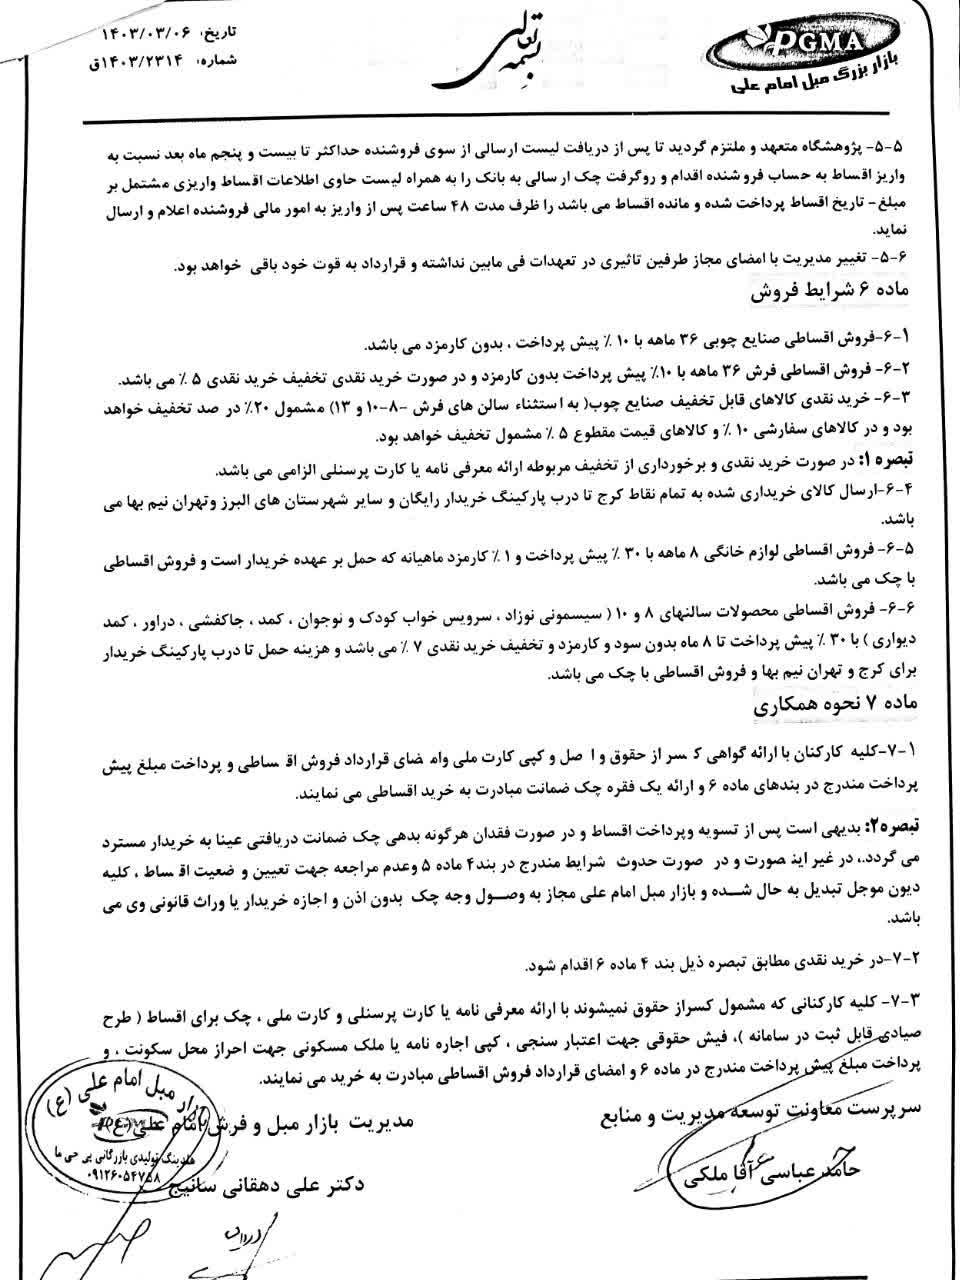 تاریخ: ۱۴۰۳/۰۳/۰۶
شماره: ۱۴۰۳/۲۳۱۴ق
بسمه تعالی
PGMA
بازار بزرگ مبل امام علی
۵-۵- پژوهشگاه متعهد و ملتزم گردید تا پس از دریافت لیست ارسالی از سوی فروشنده حداکثر تا بیست و پنجم ماه بعد نسبت به
واریز اقساط به حساب فروشنده اقدام و روگرفت چک ارسالی به بانک را به همراه لیست حاوی اطلاعات اقساط واریزی مشتمل بر
مبلغ- تاریخ اقساط پرداخت شده و مانده اقساط می باشد را ظرف مدت ۴۸ ساعت پس از واریز به امور مالی فروشنده اعلام و ارسال
نماید.
۵-۶- تغییر مدیریت با امضای مجاز طرفین تاثیری در تعهدات فی مابین نداشته و قرارداد به قوت خود باقی خواهد بود.
ماده ۶ شرایط فروش
۶-۱-فروش اقساطی صنایع چوبی ۳۶ ماهه با ۱۰ ٪ پیش پرداخت ، بدون کارمزد می باشد.
۶-۲- فروش اقساطی فرش ۳۶ ماهه با ۱۰٪ پیش پرداخت بدون کارمزد و در صورت خرید نقدی تخفیف خرید نقدی ۵ ٪ می باشد.
۶-۳- خرید نقدی کالاهای قابل تخفیف صنایع چوب( به استثناء سالن های فرش -۸-۱۰ و ۱۳) مشمول ۲۰٪ در صد تخفیف خواهد
بود و در کالاهای سفارشی ۱۰ ٪ و کالاهای قیمت مقطوع ۵ ٪ مشمول تخفیف خواهد بود.
تبصره ۱: در صورت خرید نقدی و برخورداری از تخفیف مربوطه ارائه معرفی نامه یا کارت پرسنلی الزامی می باشد.
۶-۴-ارسال کالای خریداری شده به تمام نقاط کرج تا درب پارکینگ خریدار رایگان و سایر شهرستان های البرز وتهران نیم بها می
باشد.
۶-۵- فروش اقساطی لوازم خانگی ۸ ماهه با ۳۰ ٪ پیش پرداخت و ۱ ٪ کارمزد ماهیانه که حمل بر عهده خریدار است و فروش اقساطی
با چک می باشد.
۶-۶- فروش اقساطی محصولات سالنهای ۸ و ۱۰ ( سیسمونی نوزاد ، سرویس خواب کودک و نوجوان ، کمد ، جاکفشی ، دراور ، کمد
دیواری ) با ۳۰ ٪ پیش پرداخت تا ۸ ماه بدون سود و کارمزد و تخفیف خرید نقدی ۷ ٪ می باشد و هزینه حمل تا درب پارکینگ خریدار
برای کرج و تهران نیم بها و فروش اقساطی با چک می باشد.
ماده ۷ نحوه همکاری
۷-۱-کلیه کارکنان با ارائه گواهی کسر از حقوق و اصل و کپی کارت ملی وامضای قرارداد فروش اقساطی و پرداخت مبلغ پیش
پرداخت مندرج در بندهای ماده ۶ و ارائه یک فقره چک ضمانت مبادرت به خرید اقساطی می نمایند.
تبصره۲: بدیهی است پس از تسویه وپرداخت اقساط و در صورت فقدان هرگونه بدهی چک ضمانت دریافتی عینا به خریدار مسترد
می گردد.، در غیر اینصورت و در صورت حدوث شرایط مندرج در بند۴ ماده ۵ وعدم مراجعه جهت تعیین و ضعیت اقساط ، کلیه
دیون موجل تبدیل به حال شده و بازار مبل امام علی مجاز به وصول وجه چک بدون اذن و اجازه خریدار یا وراث قانونی وی می
باشد.
۷-۲-در خرید نقدی مطابق تبصره ذیل بند ۴ ماده ۶ اقدام شود.
۷-۳- کلیه کارکنانی که مشمول کسراز حقوق نمیشوند با ارائه معرفی نامه یا کارت پرسنلی و کارت ملی ، چک برای اقساط ( طرح
صیادی قابل ثبت در سامانه )، فیش حقوقی جهت اعتبار سنجی ، کپی اجاره نامه یا ملک مسکونی جهت احراز محل سکونت ، و
پرداخت مبلغ پیش پرداخت مندرج در ماده ۶ و امضای قرارداد فروش اقساطی مبادرت به خرید می نمایند.
سرپرست معاونت توسعه مدیریت و منابع
حامد عباسی آقا ملکی
مدیریت بازار مبل و فرش امام علی(ع)
دکتر علی دهقانی سانیج
بازار مبل امام علی (ع)
هلدینگ تولیدی بازرگانی پی جی ما
۰۹۱۲۶۰۵۴۷۵۸